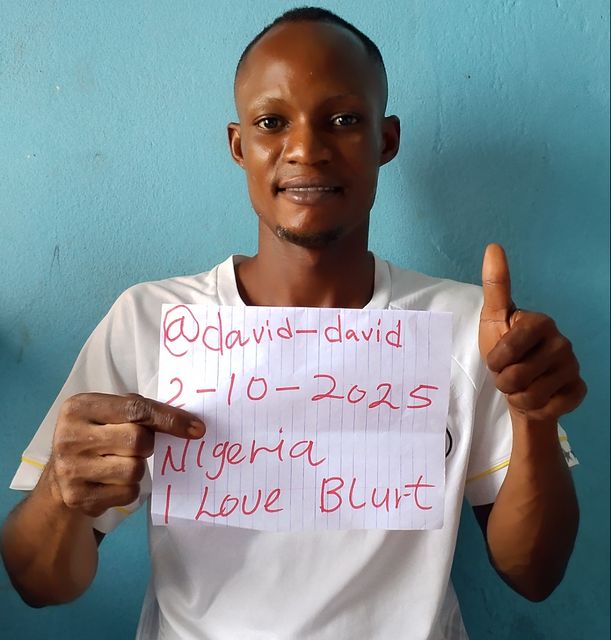 @david-david
2-10-2025
Nigeria
I Love Blurt